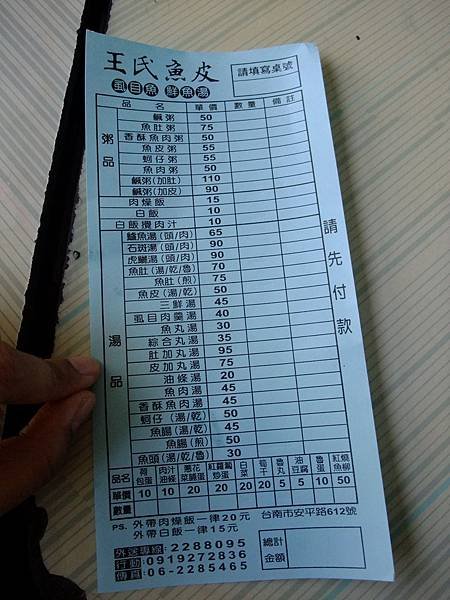 王氏魚皮
請填寫桌號
虱目魚 鮮魚湯
品名 單價 數量 備註
粥品
鹹粥 50
魚肚粥 75
香酥魚肉粥 50
魚皮粥 55
蚵仔粥 55
魚肉粥 50
鹹粥(加肚) 110
鹹粥(加皮) 90
肉燥飯 15
白飯 10
白飯攪肉汁 10
湯品
鱸魚湯(頭/肉) 65
石斑湯(頭/肉) 90
虎鱺湯(頭/肉) 90
魚肚(湯/乾/魯) 70
魚肚(煎) 75
魚皮(湯/乾) 50
三鮮湯 45
虱目肉羹湯 40
魚丸湯 30
綜合丸湯 35
肚加丸湯 95
皮加丸湯 75
油條湯 20
魚肉湯 45
香酥魚肉湯 45
蚵仔(湯/乾) 50
魚腸(湯/乾) 45
魚腸(煎) 50
魚頭(湯/魯) 30
請先付款
品名 荷包蛋 肉汁油條 蔥花菜脯蛋 紅蘿蔔炒蛋 白菜 筍干 魯丸 油豆腐 魯蛋 紅燒魚柳
單價 10 10 20 20 20 20 5 5 10 50
數量
PS. 外帶肉燥飯一律20元
外帶白飯一律15元
台南市安平路612號
外送專線:2288095
行動:0919272836
傳真:06-2285465
總計金額